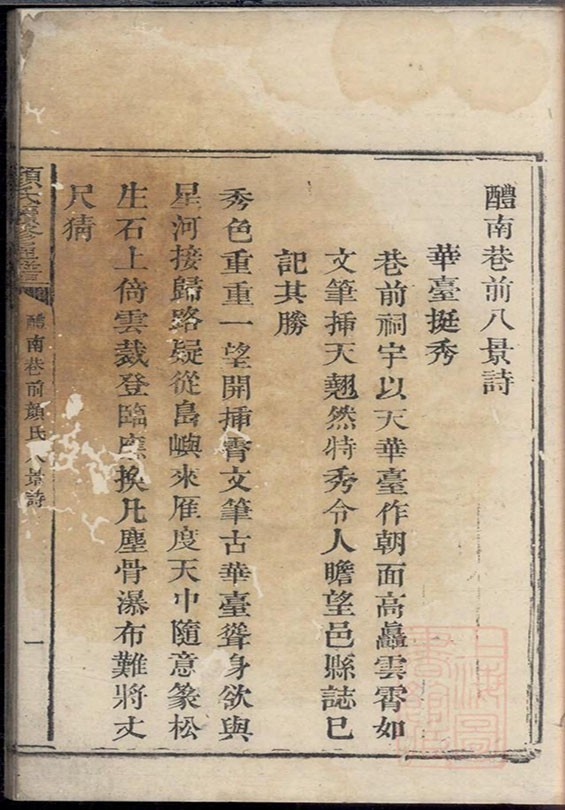 醴南巷前八景詩
華臺挺秀
巷前祠宇以天華臺作朝面高矗雲霄如
文筆揷天翹然特秀令人瞻望邑縣誌已
記其勝
秀色重重一望開揷霄文筆古華臺聳身欲與
星河接歸路疑從島嶼來雁度天中隨意篆松
生石上倚雲裁登臨應換凡塵骨瀑布難將丈
尺猜
顏氏續修通譜
醴南巷前顏氏八景詩
一
上海圖書館藏